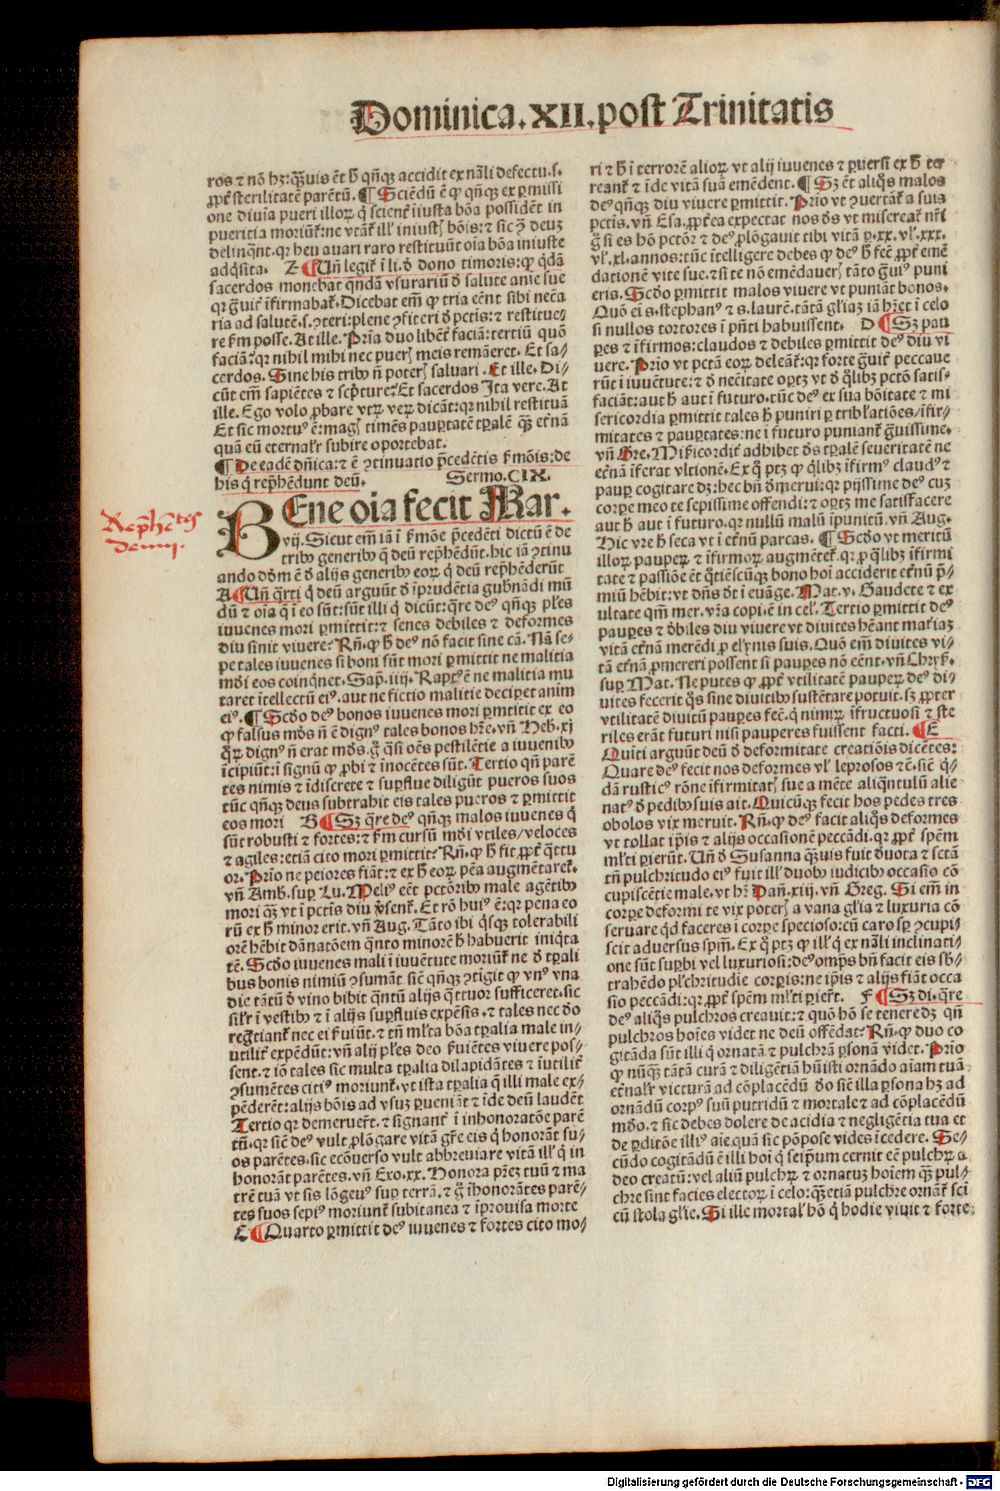 Dominica.XII.post Trinitatis
ros ⁊ nō hꝫ:qͣꝫuis ēt h̄ qñqꝫ accidit ex nāli defectu.s.
ꝓpt̄ sterilitatē parētū. ¶ Sciēdū ē ꝙ qñqꝫ ex ꝑmissi
one diuīa pueri illoꝝ q̄ scient̄ iiusta bōa possidēt in
puericia moriūt̄:ne vtāt̄ ill' iniustꝭ bōis:⁊ sic ꝯ̄ deuꝫ
delinq̄nt.qꝛ heu auari raro restituūt oīa bōa iniuste
adq̄sita. Z ¶ Vn̄ legit̄ ī li.d̄ dono timoris:ꝙ qdā
sacerdos monebat qndā vsurariū d̄ salute anīe sue
qꝛ gͣuit̄ īfirmabat̄.Dicebat em̄ ꝙ tria eēnt sibi necͣa
ria ad salutē.s.ꝯteri:plene ꝯfiteri d̄ pctīs:⁊ restitue⸗
re fm posse.At ille.Pria duo libēt̄ faciā:tertiū quō
faciā:qꝛ nihil mihi nec puerꝭ meis remāeret. Et sa⸗
cerdos. Sine his tribꝰ n̄ poterꝭ saluari. Et ille. Di⸗
cūt em̄ sapiētes ⁊ scpͥture:Et sacerdos Ita vere.At
ille. Ego volo ꝓbare vtꝝ veꝝ dicāt:qꝛ nihil restituā
Et sic mortuꝰ ē:magꝭ timēs pauꝑtatē tꝑalē qͣꝫ et̄nā
quā eū eternalr̄ subire oportebat.
¶ De eadē dn̄ica:⁊ ē ꝯtinuatio p̄cedētis f̄mōis:de
his q̄ rep̄hēdunt deū. Sermo.CIX.
BEne oīa fecit Mar.
vij.Sicut em̄ iā ī f̄mōe p̄cedēti dictū ē de
tribꝰ generibꝰ q̄ deū rep̄hēdūt.hic iā ꝯtinu
ando dōm ē d̄ alijs generibꝰ eoꝝ q̄ deū rep̄hēderūt
A ¶ Vn̄ qͣrti q̄ deū arguūt d̄ īprudētia gubn̄andi mū
dū ⁊ oīa q̄ ī eo sūt:sūt illi q̄ dicūt:qͣre deꝰ qñqꝫ pl'es
iuuenes mori ꝑmittit:⁊ senes debiles ⁊ deformes
diu sinit viuere? Rn̄.ꝙ h̄ deꝰ nō facit sine cā. Nā se⸗
pe tales iuuenes si boni sūt mori ꝑmittit ne malitia
mōi eos coinqnet. Sap.iiij.Raptꝰ ē ne malitia mu
taret ītellectū eiꝰ.aut ne fictio malitie deciꝑet anim
eiꝰ. ¶ Scd̄o deꝰ bonos iuuenes mori ꝑmittit ex eo
ꝙ falsus mōs n̄ ē dignꝰ tales bonos hr̄e.vn̄ Heb.xj
qͥꝝ dignꝰ n̄ erat mōs.gͦ qͣsi oēs pestilētie a iuuenibꝰ
īcipiūt:ī signū ꝙ ꝓbi ⁊ īnocētes sūt. Tertio qn̄ parē
tes nimis ⁊ īdiscrete ⁊ suꝑflue diligūt pueros suos
tūc qñqꝫ deus subtrahit eis tales pueros ⁊ ꝑmittit
eos mori B ¶ Sꝫ qͣre deꝰ qñqꝫ malos iuuenes q̄
sūt robusti ⁊ fortes:⁊ fm cursū mōi vtiles/veloces
⁊ agiles:etiā cito mori ꝑmittit? Rn̄.ꝙ h̄ fit ꝓpt̄ qͣttu
or.Prīo ne peiores fiāt:⁊ ex h̄ eoꝝ pēa augmētaret̄.
vn̄ Amb.suꝑ Lu.Meliꝰ eēt pctōribꝰ male agētibꝰ
mori qͣꝫ vt ī pctis diu vͥsent̄. Et rō huiꝰ ē:qꝛ pena eo
rū ex h̄ minor erit.vn̄ Aug.Tāto ibi qͥsqꝫ tolerabili
orē hēbit dānatōem qͣnto minorē h̄ habuerit iniqͥta
tē. Scd̄o iuuenes mali ī iuuētute moriūt̄ ne d̄ tꝑali
bus bonis nimiū ꝯsumāt sic̄ qñqꝫ ꝯtigit ꝙ vnꝰ vna
die tātū d̄ vino bibit qͣntū alijs qͣttuor sufficeret.sic
silr̄ ī vestibꝰ ⁊ ī alijs suꝑfluis expensis.⁊ tales nec do
regͣtiant̄ nec ei f̄uiūt.⁊ tn̄ ml'ta bōa tꝑalia male in⸗
utilit̄ expēdūt:vn̄ alij pl'es deo f̄uiētes viuere pos⸗
sent.⁊ iō tales sic multa tꝑalia dilapidātes ⁊ iutilit̄
ꝯsumētes citiꝰ moriunt̄.vt ista tꝑalia q̄ illi male ex⸗
pēderēt:alijs bōis ad vsuꝫ ꝑueniāt ⁊ īde deū laudēt
Tertio qꝛ demerueīt.⁊ signant̄ ī inhonoratōe parē
tū.qꝛ sic̄ deꝰ vult ꝓlōgare vitā gͣte eis q̄ honorāt su⸗
os parētes.sic ecōuerso vult abbreuiare vitā ill' q̄ in
honorāt parētes.vn̄ Exo.xx.Honora pr̄eꝫ tuū ⁊ ma
trē tuā vt sis lōgeuꝰ suꝑ terrā.⁊ gͦ īhonorātes parē⸗
tes suos sepiꝰ moriunt̄ subitanea ⁊ īprouisa morte
C ¶ Quarto ꝑmittit deꝰ iuuenes ⁊ fortes cito mo⸗
Rep̄hētes
deum.
ri ⁊ h̄ ī terrorē alioꝝ vt alij iuuenes ⁊ ꝑuersi ex h̄ ter
reant̄ ⁊ īde vitā suā emēdent. ¶ Sꝫ ēt aliqͦs malos
deꝰ qñqꝫ diu viuere ꝑmittit. Prīo vt ꝯuertāt̄ a suis
pctis.vn̄ Esa.ꝓpt̄ea expectat nos dn̄s vt misereat̄ nr̄i
gͦ si es hō pctōr ⁊ deꝰ ꝓlōgauit tibi vitā ꝑ.xx.vl'.xxx.
vl'.xl.annos:tūc ītelligere debes ꝙ deꝰ h̄ fec̄ ꝓpt̄ emē
dationē vite sue.⁊ si te nō emēdauerꝭ tāto gͣuiꝰ puni
eris. Scd̄o ꝑmittit malos viuere vt puniāt bonos.
Quō ei s.stephanꝰ ⁊ s.laurē.tātā gl'iaꝫ iā hr̄ēt ī celo
si nullos tortores ī pn̄ti habuissent. D ¶ Sꝫ pau
ꝑes ⁊ īfirmos:claudos ⁊ debiles ꝑmittit deꝰ diu vi
uere. Prīo vt pctā eoꝝ deleāt̄:qꝛ forte gͣuit̄ peccaue
rūt ī iuuētute:⁊ d̄ nec̄itate oꝑtꝫ vt d̄ qͦlibꝫ pctō satis⸗
faciāt:aut h̄ aut ī futuro.tūc deꝰ ex sua bōitate ⁊ mi
sericordia ꝑmittit tales h̄ puniri ꝑ tribl'atiōes/īfir⸗
mitates ⁊ pauꝑtates:ne ī futuro puniant̄ gͣuissime.
vn̄ Gre.Mīcordit̄ adhibet dn̄s tꝑalē seueritatē ne
et̄nā īferat vltionē. Ex q̄ ptꝫ ꝙ qͥlibꝫ īfirmꝰ claudꝰ ⁊
pauꝑ cogitare dꝫ:hec bn̄ d̄merui:qꝛ pijssime deꝰ cuꝫ
corꝑe meo te sepissime offendi:⁊ oꝑtꝫ me satisfacere
aut h̄ aut ī futuro.qꝛ nullū malū īpunitū.vn̄ Aug.
Hic vre h̄ seca vt ī et̄nū parcas. ¶ Scd̄o vt meritū
illoꝝ pauꝑeꝝ ⁊ īfirmoꝝ augmētet̄.qꝛ ꝓ qͣlibꝫ īfirmi
tate ⁊ passiōe ēt qͣtiēscūqꝫ bono hoī acciderit et̄nū p̄⸗
miū hēbit:vt dn̄s dt̄ ī euāge.Mat.v.Gaudete ⁊ ex
ultate qm̄ mer.vr̄a copi.ē in cel'.Tertio ꝑmittit deꝰ
pauꝑes ⁊ d̄biles diu viuere vt diuites hēant mat̄iaꝫ
vitā et̄nā merēdi ꝑ elyn̄is suis.Quō em̄ diuites vi⸗
tā et̄nā ꝓmereri possent si pauꝑes nō eēnt.vn̄ Chryſ.
suꝑ Mat.Ne putes ꝙ ꝓpt̄ vtilitatē pauꝑeꝝ deꝰ di⸗
uites fecerit qͦs sine diuitibꝰ sustētare potuit.sꝫ ꝓpter
vtilitatē diuitū pauꝑes fec̄.q̄ nimiꝝ īfructuosi ⁊ ste
riles erāt futuri nisi pauperes fuissent facti. ¶ E
Quīti arguūt deū d̄ deformitate creatiōis dicētes:
Quare deꝰ fecit nos deformes vl' leprosos ⁊c̄.sic̄ qͥ⸗
dā rusticꝰ rōne īfirmitatꝭ sue a mēte aliqͣntulū alie
natꝰ d̄ pedibꝰ suis ait.Quicūqꝫ fecit hos pedes tres
obolos vix meruit. Rn̄.ꝙ deꝰ facit aliqͦs deformes
vt tollat ip̄is ⁊ alijs occasionē peccādi.qꝛ ꝓpt̄ spēm
ml'ti ꝑierūt.Vn̄ d̄ Susanna qͣꝫuis fuit d̄uota ⁊ sctā
tn̄ pulchritudo eiꝰ fuit ill' duobꝰ iudicibꝰ occasio cō
cupiscētie male.vt hꝛ Dan̄.xiij.vn̄ Greg. Si em̄ in
corꝑe deformi te vix poterꝭ a vana gl'ia ⁊ luxuria cō
seruare qd̄ faceres ī corꝑe specioso:cū caro sꝑ ꝯcupi⸗
scit aduersus spm̄. Ex q̄ ptꝫ ꝙ ill' q̄ ex nāli inclinati⸗
one sūt suꝑbi vel luxuriosi:deꝰ omp̄s bn̄ facit eis sb̄⸗
trahēdo pl'chritudiē corꝑis:ne ip̄is ⁊ alijs fiāt occa
sio peccādi:qꝛ ꝓpt̄ spēm ml'ti ꝑieīt. F ¶ Sꝫ di.qͣre
deꝰ aliqͦs pulchros creauit:⁊ quō hō se tenere dꝫ qn̄
pulchros hoīes videt ne deū offēdat? Rn̄.ꝙ duo co
gitāda sūt illi q̄ ornatā ⁊ pulchrā ꝑsonā videt. Prīo
ꝙ nūqͣꝫ tātā curā ⁊ diligētiā hūisti ornādo aīam tuā
et̄nalr̄ victurā ad cōplacēdū deo sic̄ illa ꝑsona hꝫ ad
ornādū corpꝰ suū putridū ⁊ mortale ⁊ ad cōplacēdū
mūdo.⁊ sic debes dolere de acidia ⁊ negligētia tua et
de ꝑditōe illiꝰ aīe.quā sic pōpose vides īcedere. Se⸗
cūdo cogitādū ē illi hoī q̄ seip̄um cernit eē pulchꝝ a
deo creatū:vel aliū pulchꝝ ⁊ ornatuꝫ hoīem qͣꝫ pul⸗
chre sint facies electoꝝ ī celo:qͣꝫ etiā pulchre ornāt̄ sci
cū stola gl'ie. Si ille mortal' hō q̄ hodie viuit ⁊ forte
Digitalisierung gefördert durch die Deutsche Forschungsgemeinschaft - DFG